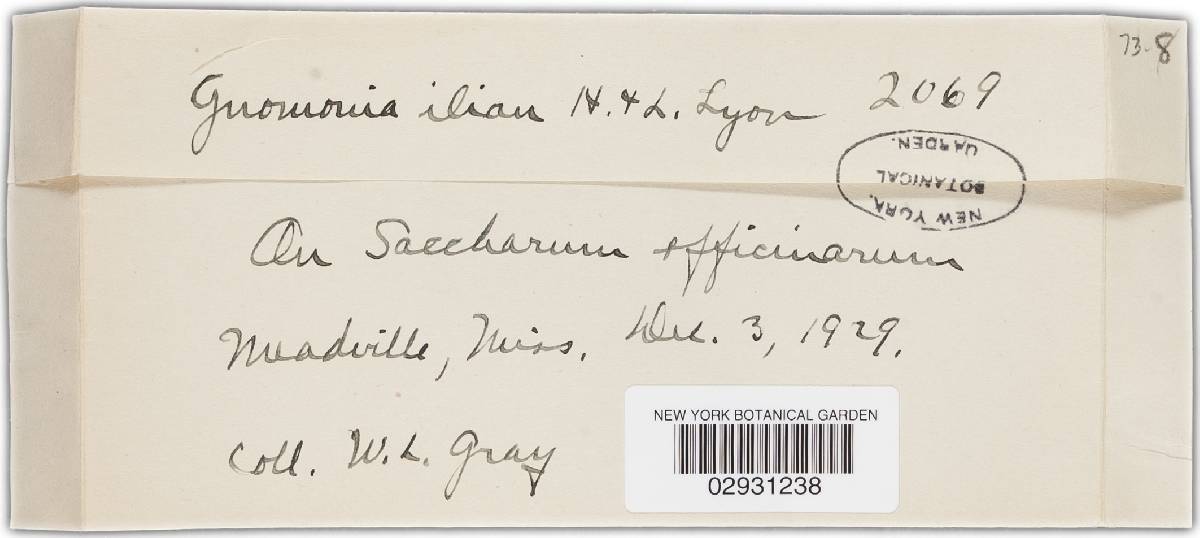 73-8
Gnomonia ilian H. & L. Lyon 2069
NEW YORK
BOTANICAL
GARDEN.
On Saccharum officinarum
Meadville, Miss. Dec. 3, 1929.
Coll. W. L. Gray
NEW YORK BOTANICAL GARDEN
02931238